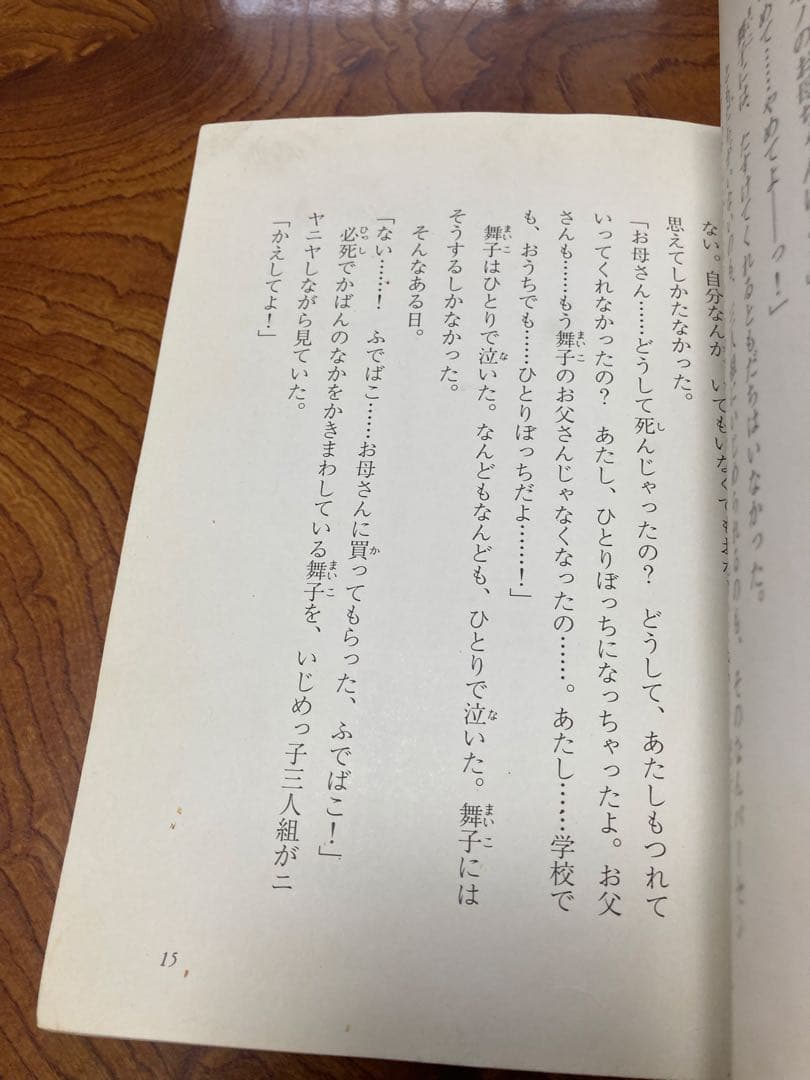 めて……やめてよ――っ!」
たすけてくれるともだちはいなかった。
ない。自分なんか、いてもいなくても
思えてしかたなかった。
「お母さん……どうして死んじゃったの? どうして、あたしもつれて
いってくれなかったの? あたし、ひとりぼっちになっちゃったよ。お父
さんも……もう舞子のお父さんじゃなくなったの……。あたし……学校で
も、おうちでも……ひとりぼっちだよ……!」
舞子はひとりで泣いた。なんどもなんども、ひとりで泣いた。舞子には
そうするしかなかった。
そんなある日。
「ない……! ふでばこ……お母さんに買ってもらった、ふでばこ!」
必死でかばんのなかをかきまわしている舞子を、いじめっ子三人組がニ
ヤニヤしながら見ていた。
「かえしてよ!」
15